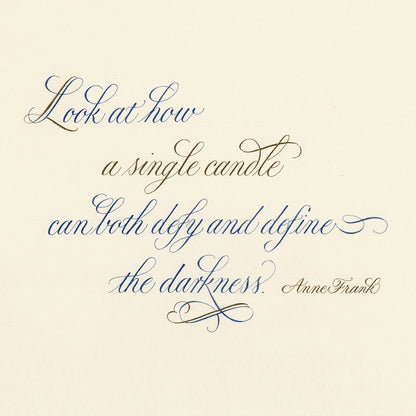 Look at how
a single candle
can both defy and define
the darkness. Anne Frank